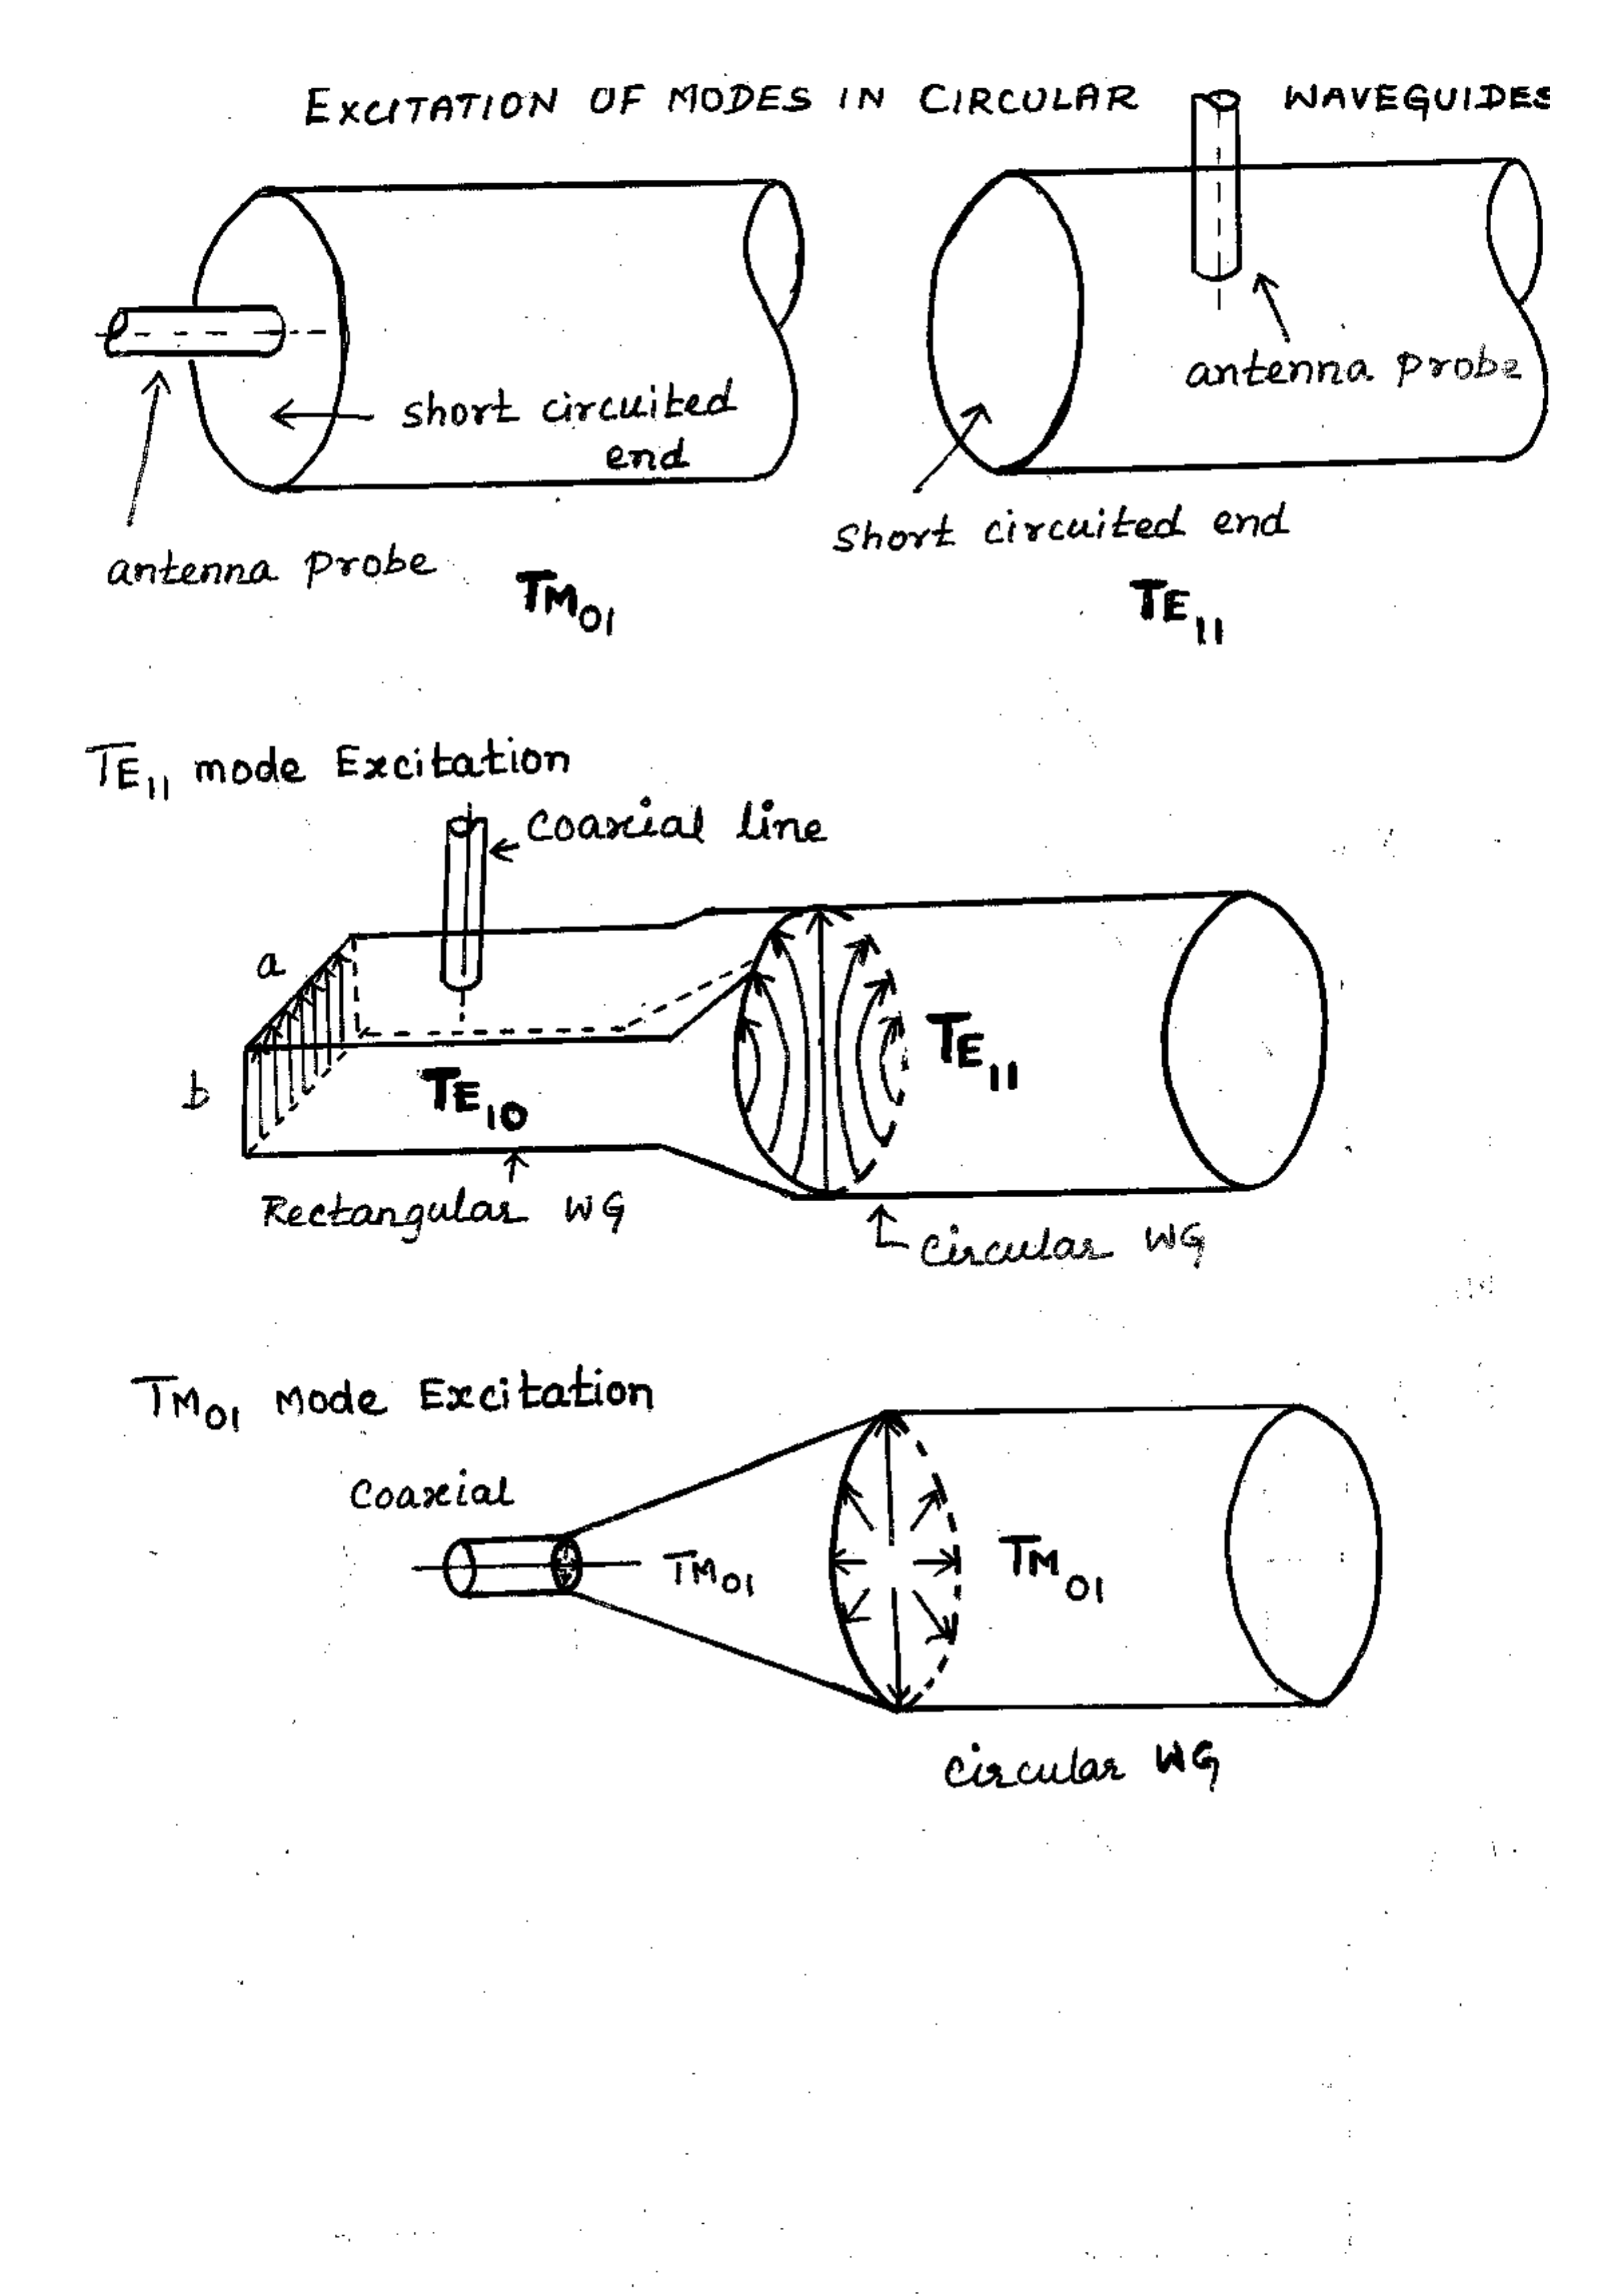 EXCITATION OF MODES IN CIRCULAR WAVEGUIDES
short circuited
end
antenna probe
TM01
antenna probe
Short circuited end
TE11
TE11 mode Excitation
Coaxial line
a
b
TE10
TE11
Rectangular WG
Circular WG
TM01 Mode Excitation
Coaxial
TM01
TM01
Circular WG